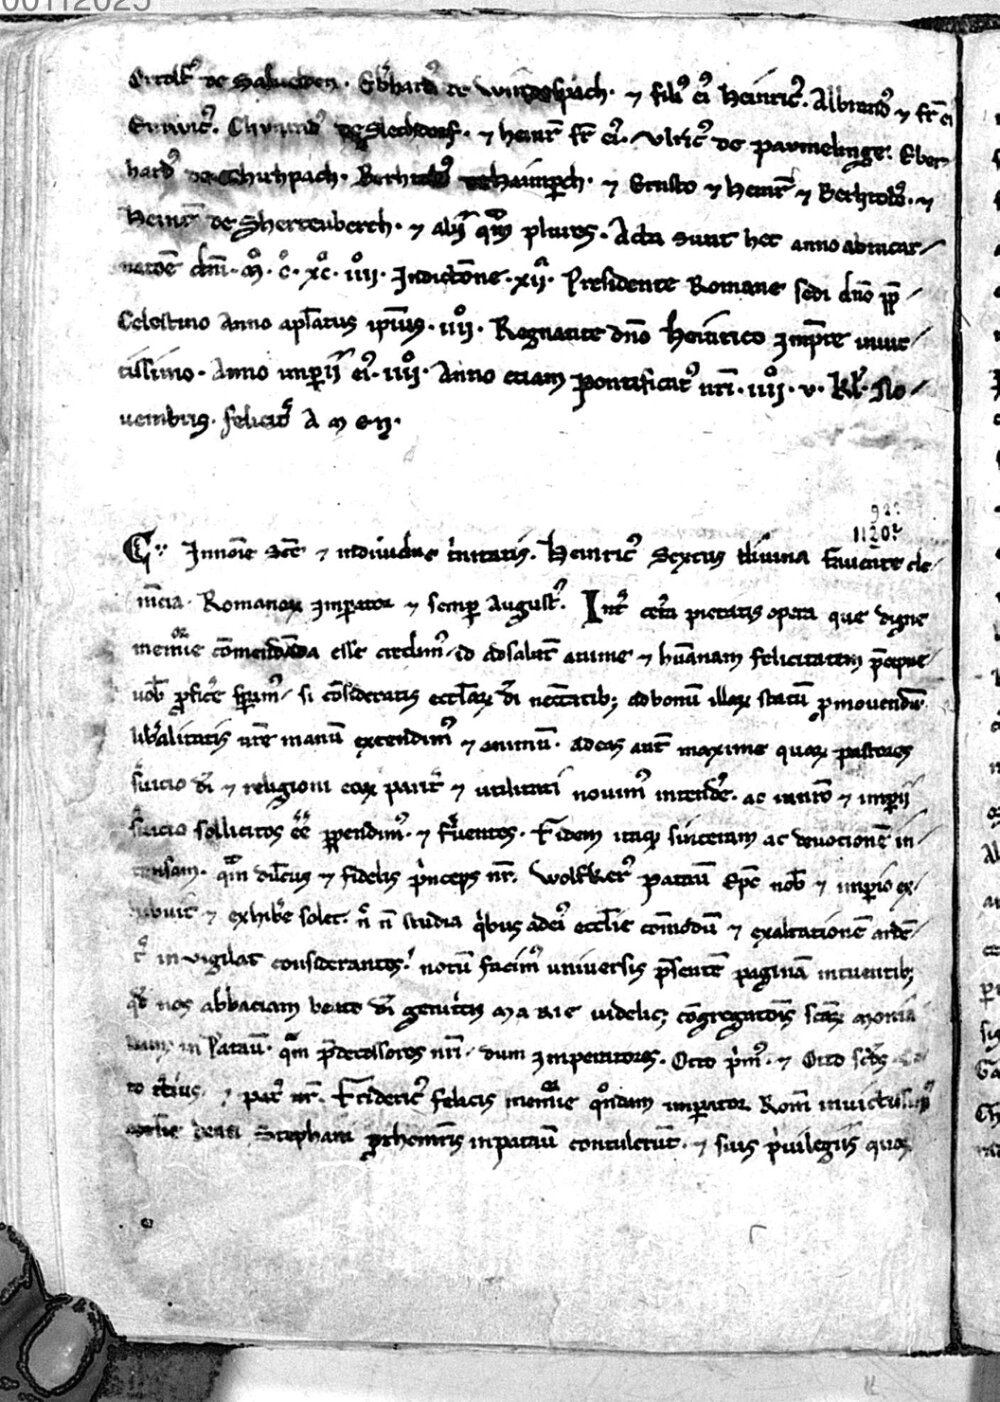 00112025
de Saluelden · Eb̓hard᷒ de Windespach · ⁊ fili᷒ ei᷒ Heinric᷒ . Albrand᷒ ⁊ fr̄ ei᷒
de Slechdorf · ⁊ heinr̄ fr̄ ei᷒ . Vlric᷒ de paumelinge . Eber
hard᷒ de Chuhpach · Berhtold᷒ · ⁊ Ernsto ⁊ Heinr̄ ⁊ Berhtold᷒ · ⁊
Heinr̄ de Sherttenberch · ⁊ alij qm̄ plures · Acta sunt hec anno abincar/
natōe dn̄i · m̊ · c̊ · xc̊ · iiii̊ · Indictōne · xii̊ · Presidente Romane sedi dn̄o pp̄ /
Celestino Anno apl̄atus ipsius · iiii̊ · Regnante dn̄o Heinrico Impr̄e inuic/
tissimo · Anno impīi ei᷒ · iiii̊ · Anno etiam pontificat᷒ nr̄i · iiii̊ · v · kl̄ · No /
uembris · felicit᷒ A m e n ·
92?
1120?
C᷒ · In noīe sc̄e ⁊ indiuidue t̓nitatis . Heinric᷒ Sextus diuina fauente cle/
m̄cia · Romanoꝝ Imꝑator ⁊ semꝑ August᷒ . Int᷒ cet̓a pietatis opera que digne
memorie cōmendāda esse credim᷒ / id ad salut̄ anime ⁊ hūanam felicitatem p̄cipue /
nob̄ ꝓfic̓e sꝑam᷒ / si cōsideratis eccl̄aꝝ di̅ nec̄tatib; ad bonū illaꝝ statū ꝓmouendū .
lib̓alitatis nr̄e manū extendim᷒ ⁊ animū · ad eas aut̄ maxime quaꝝ pastores
s̓uicio di̅ ⁊ religioni eaꝝ parit̓ ⁊ utilitati nouim᷒ intend̓e · ac nr̄o ⁊ imꝑii
s̓uicio sollicitos e̅e ꝑpendim᷒ · ⁊ f̓uentes · Fidem itaqꝫ sinceram ac deuocionē in /
tensam · quam dil̄cus ⁊ fidelis p̓nceps nr̄ . Wolfker᷒ patau̅ Ep̄c nob̄ ⁊ imꝑio ex /
hibuit ⁊ exhib̓e solet · n̄ n̄ studia q̓bus ad ei᷒ eccl̄ie cōmodū ⁊ exaltationē ardēt /
t᷒ inuigilat considerantes · notū facim᷒ uniuersis p̄sentē paginā intuentib;
qd̄ nos abbaciam beate di̅ genit̓cis MARIE uidelic; cōgregatōis sc̄aꝝ monia
in Patau̅ · qm̄ p̄decessores nr̄i · dum Imperatores · Otto p̓m᷒ · ⁊ Otto sc̄ds
t̓cius · ⁊ pat᷒ nr̄ . Frideric᷒ felicis memorie q̊ndam imꝑator Rom̄ inuictissim᷒
beati Stephani ꝓthom̄ris in patau̅ contulerūt · ⁊ suis p̓uilegiis quoꝝ